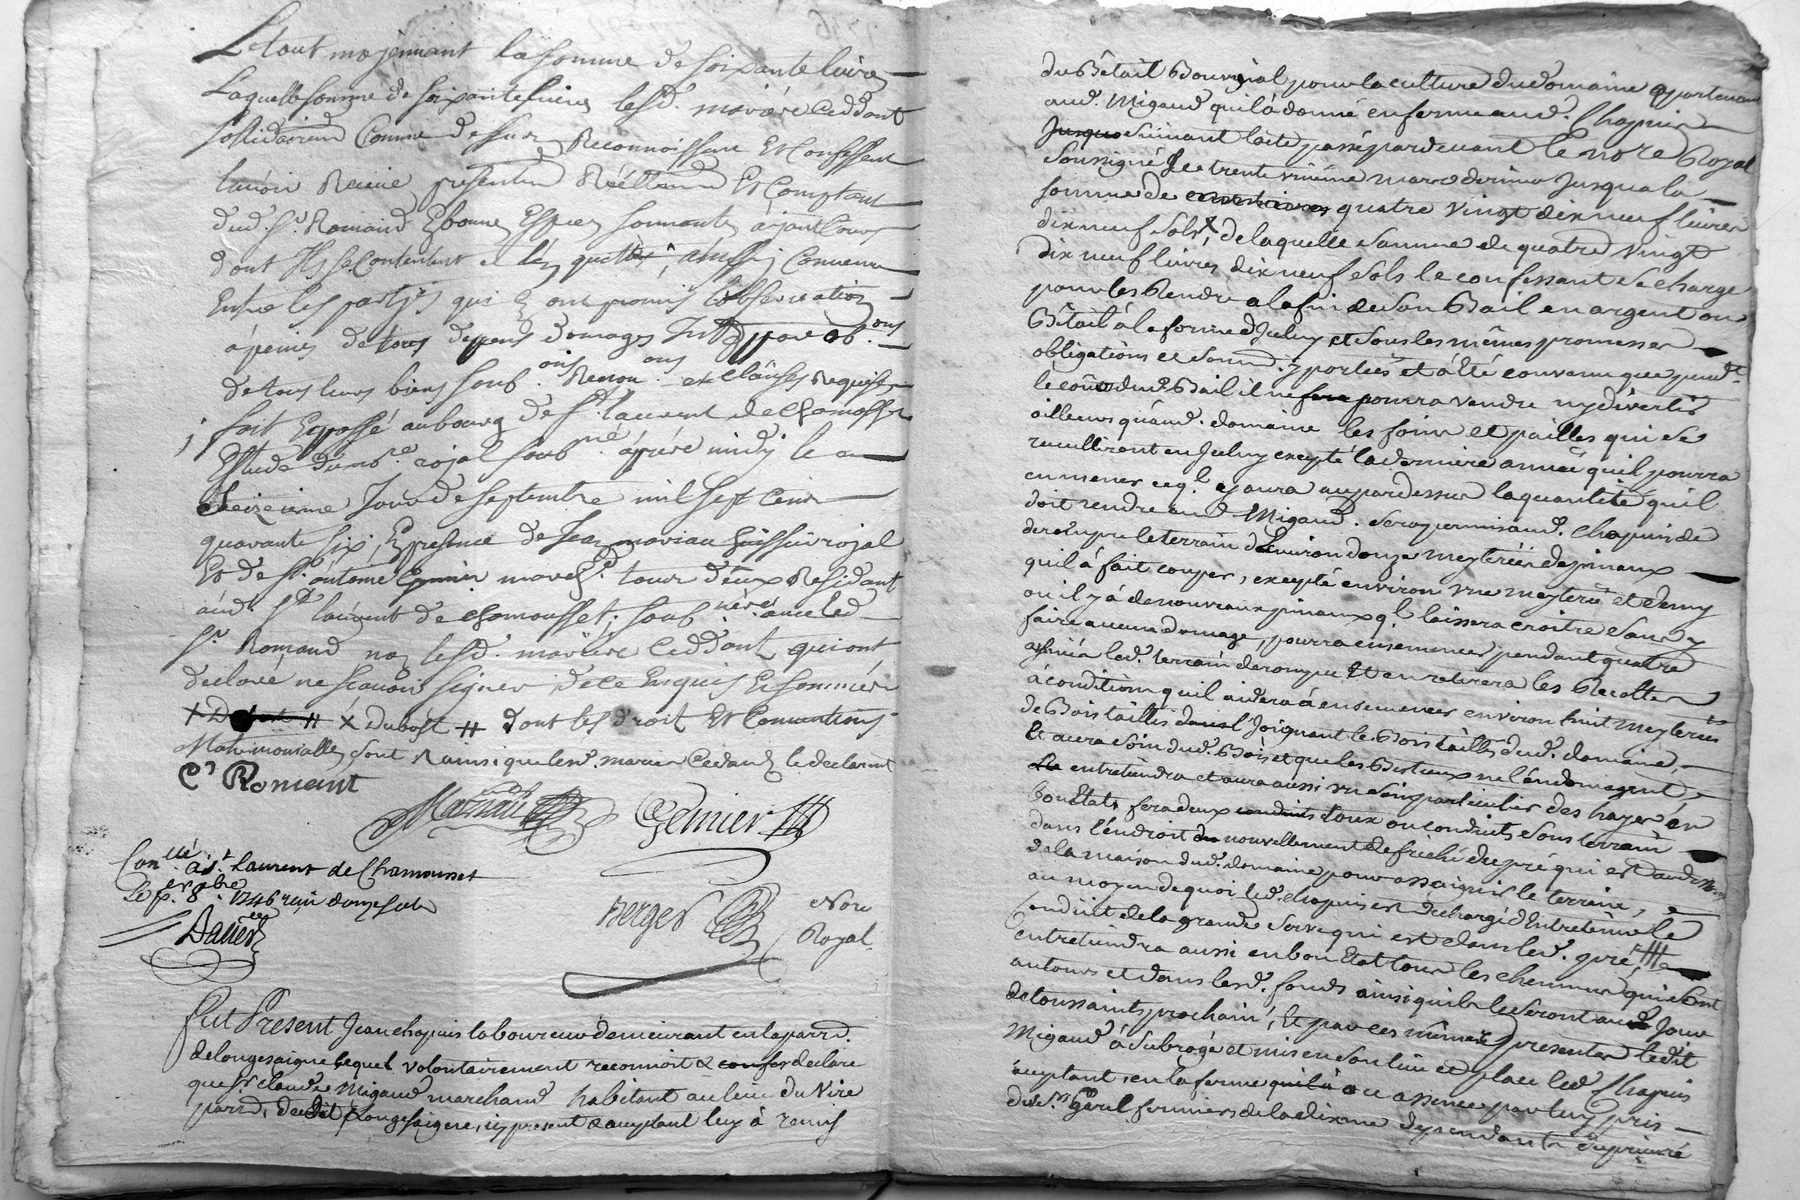 Le tout moyennant la somme de soixante livres
Laquelle somme de soixante livres lesd. mariés ceddants
sollidairement comme dessus Reconnoissent Et Confessent
l'avoir Receue presentement Réellement Et Comptant
dud. Sr. Romand En bonnes Especes sonnantes ayant Cours
dont Ils se Contentent et l'en quittent, ainssy Convenu
Entre les partyes qui En ont promis l'observation
à peines de tous depens domages par ob.ons
de tous leurs biens soub.ons Renon.ons et clauses Requises
fait Et passé au bourg de St. laurent de chamousset
Estude du no.re royal soub.né après midy le
seizieme Jour de septembre mil sept cent
quarante six, En presence de Jean mariau huissier royal
Et de Sr. antoine Epmier march.d tous d'eux Residant
aud. St. laurent de chamousset, soub.nés avec led.
Sr. Romand non lesd. mariés Ceddants qui ont
declaré ne sçavoir signer de ce Enquis Et sommés
x Dubost # dont les droit Et Conventions
Matrimonialles sont ainsi que lesd. mariés Cedants le declarent
C. Romant
Mariau Epmier
Con.llé à St. Laurent de Chamousset
le 8.bre 1746 reçu douze sols
Berger Nore
Royal
Fut Present Jean chapuis laboureur demeurant en la parr.
de longesaigne lequel volontairement reconnoit & confes declare
que Sr. claude Migaud marchand habitant au lieu du Vire
parr. dudit Longesaigne, icy present & acceptant luy à remis
du Bétail Bouvial pour la culture du domaine appartenant
aud. Migaud qu'il à donné en ferme aud. Chapuis
Jusques suivant l'acte passé pardevant le nore Royal
soussigné le trente unième mars dernier Jusqua la
somme de quatre vingt dix neuf livres
dix neuf sols, de laquelle somme de quatre vingt
dix neuf livres dix neuf sols le confessant se charge
pour les Rendre a la fin de son Bail en argent ou
Bétail à la forme d'Iceluy et sous les mêmes promesses
obligations et soum. y portées et à été convenu que pend.t
le cour dud. Bail il ne pourra vendre ny divertir
ailleurs quaud. domaine les foins et pailles qui se
recuilliront en Iceluy excepté la derniere année qu'il pourra
emmener ce q.l y aura aupardessus la quantité qu'il
doit rendre aud. Migaud. sera permis aud. Chapuis de
derompre le terrain d'Environ douze meyterées de pinaux
qu'il à fait couper, excepté environ une meyterée et demy
ou il y à de nouveaux pinaux q.l laissera croitre sans y
faire aucun domage, pourra ensemencer pendant quatre
années led. terrain derompu Et en retirera les Recoltes
à condition qu'il aidera à ensemencer environ huit meyterées
de Bois taillis Joignant le Bois taillis dud. domaine,
Et aura soin dud. Bois et que les Bestiaux ne l'endomagent
entretiendra et aura aussi un soin particulier des hayes en
bon Etat, fera deux conduits toux ou conduits sous terrain
dans l'endroit nouvellement defriché du pré qui est au dessus
de la maison dud. domaine pour assaignir le terrain,
au moyen de quoi led. chapuis est dechargé d'Entretenir le
conduit de la grande serve qui est dans led. pré,
entretiendra aussi en bon Etat tous les chemins qui sont
autours et dans lesd. fonds ainsi qu'ils le seront au Jour
de toussaints prochain, Et par ces mêmes presentes ledit
Migaud à subrogé et mis en son lieu et place led. Chapuis
acceptant, en la ferme ou assence par luy pris
des Srs. fermiers de la dixme dependante du prieuré